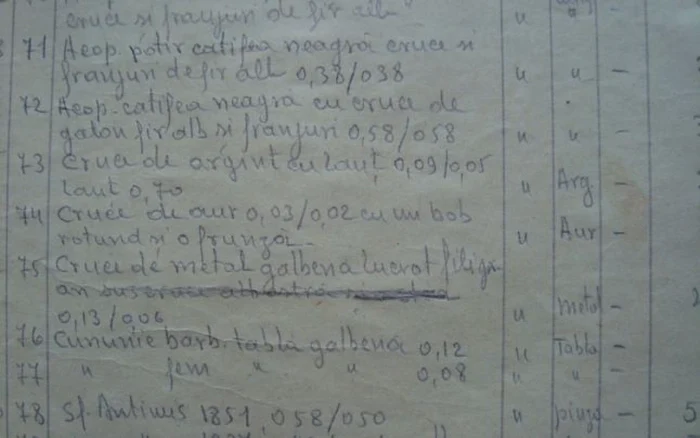 cruce si franjuri de fir alb
71 Acop. potir catifea neagră cruce si
franjuri de fir alb 0,38/038 " " -
72 Acop. catifea neagră cu cruce de
galon fir alb si franjuri 0,58/058 " " -
73 Cruce de argint cu lanț 0,09/0,05
lanț 0,70 " Arg -
74 Cruce de aur 0,03/0,02 cu un bob
rotund si o frunză " Aur -
75 Cruce de metal galbenă lucrat filigr
0,13/006 " metal -
76 Cununie barb. tablă galbenă 0,12 " Tabla -
77 " fem " " 0,08 " " -
78 Sf. Antimis 1851, 058/050 " pinza - 5